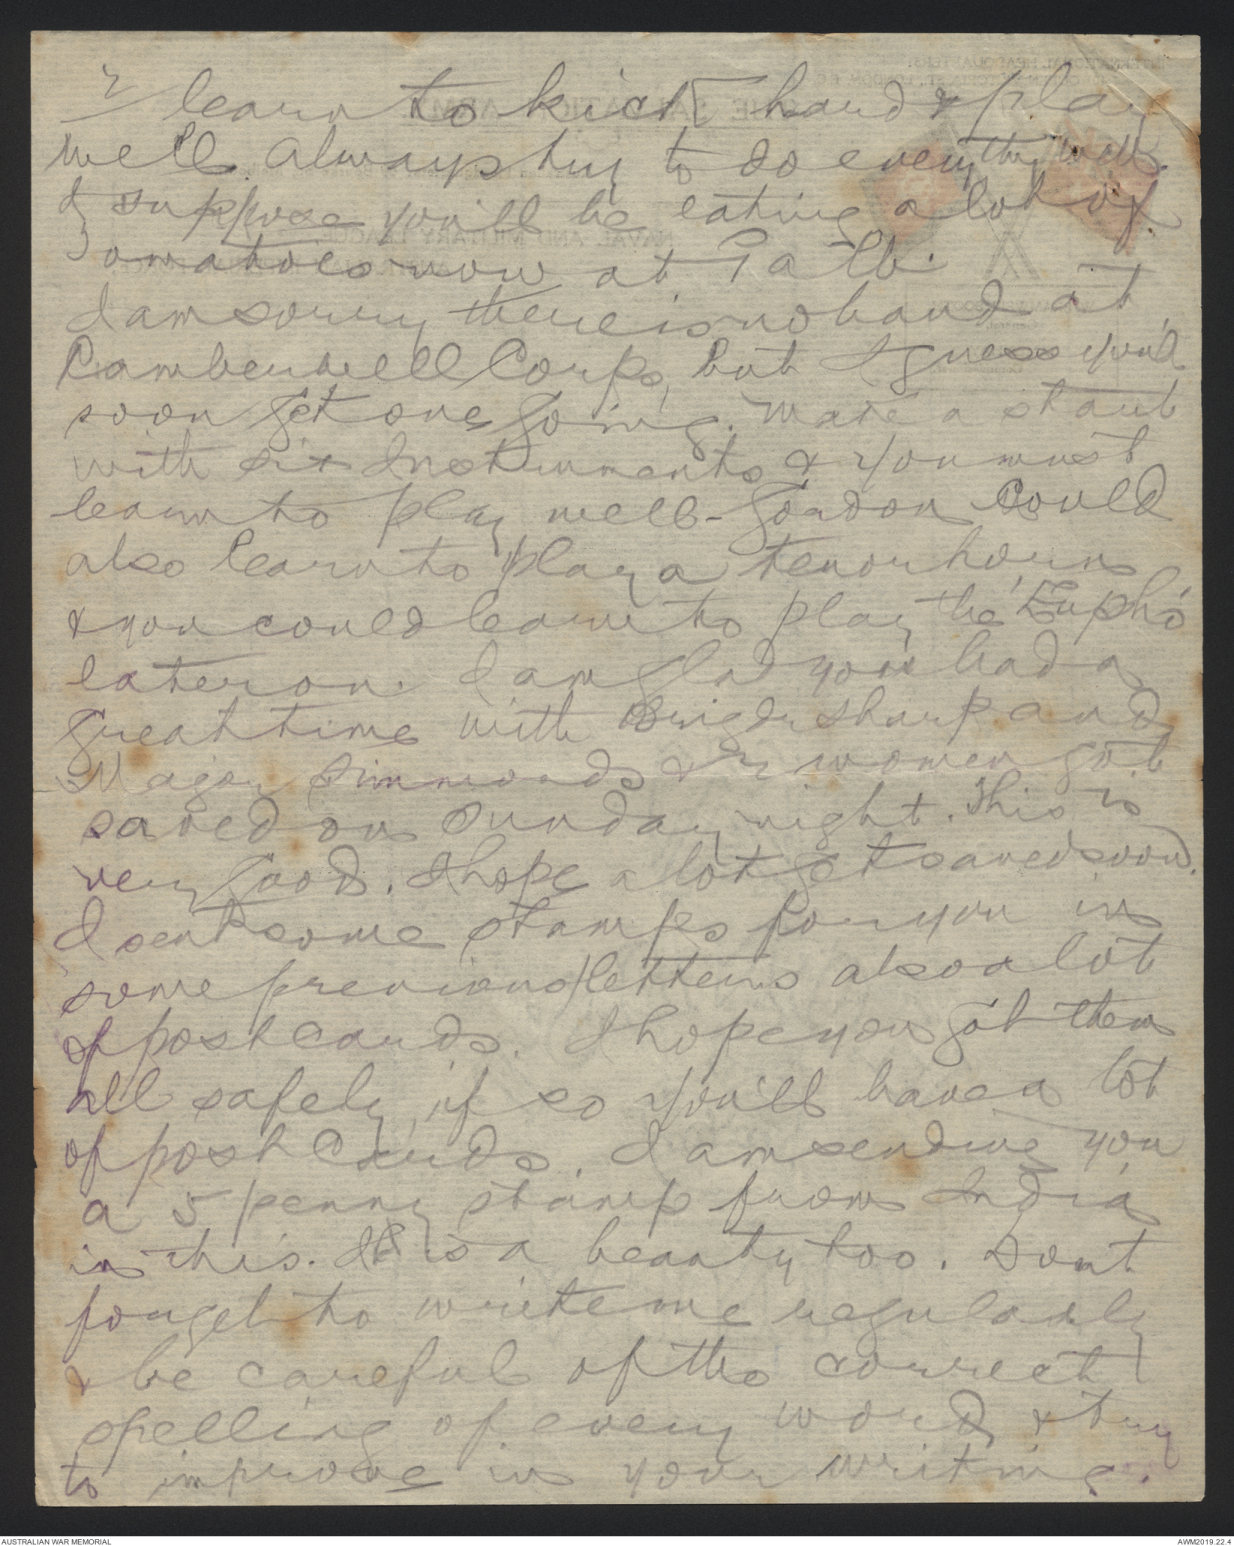 2
learn to kick hard & play
well. Always try to do everything well.
I suppose you'll be eating a lot of
Tomatoes now at Patk.
I am sorry there is no band at
Camberwell Corps, but I guess you'll
soon get one going. Make a start
with six Instruments & you must
learn to play well - Gordon could
also learn to play a tenor horn
& you could learn to play the 'Eupho'
later on. I am glad you had a
great time with Brigdr Sharp and
Major Simmonds & 2 women got
saved on Sunday night. This is
very good. I hope a lot get saved soon.
I sent some stamps for you in
some previous letters also a lot
of post cards. I hope you got them
all safely, if so you'll have a lot
of post Cards. I am sending you
a 5 penny stamp from India
in this. It is a beauty too. Dont
forget to write me regularly
& be careful of the correct
spelling of every word & try
to improve in your writing.
AUSTRALIAN WAR MEMORIAL
AWM2019.22.4